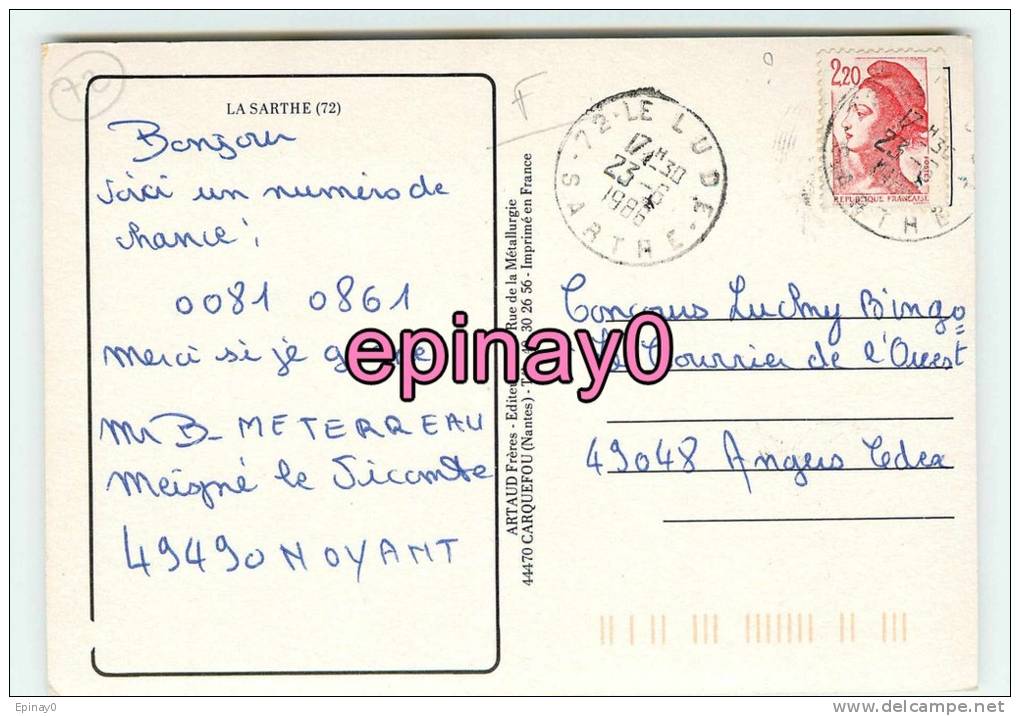 72
LA SARTHE (72)
Bonjour
voici un numéro de
chance ;
0081 0861
Merci si je gagne
Mr B_ METERREAU
Meigné le Vicomte
49490 NOYANT
ARTAUD Frères - Editeurs - Rue de la Métallurgie
44470 CARQUEFOU (Nantes) - Tél. 40 30 26 56 - Imprimé en France
F
72 - LE LUDE - SARTHE
17H30
23 -6
1986
2,20
REPUBLIQUE FRANÇAISE
17H30
23 -
Concours Luckny Bingo
Le Courrier de l'Ouest
49048 Angers Cedex
epinay0
Epinay0
www.delcampe.net